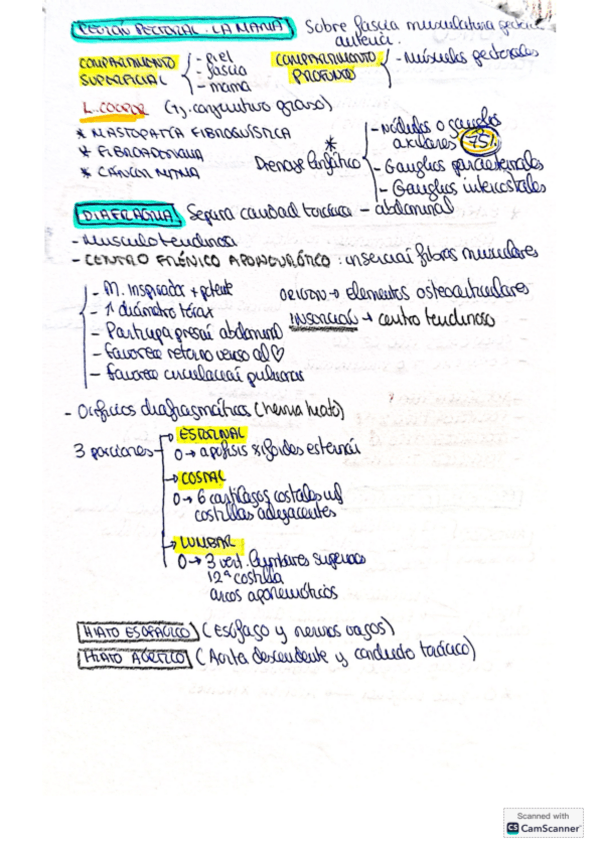 REGIÓN PECTORAL. LA MAMA Sobre fascia musculatura pectoral
anterior.
COMPARTIMENTO SUPERFICIAL - Piel - fascia - mama
COMPARTIMENTO PROFUNDO - Músculos pectorales
L. COOPER (Tj. conjuntivo graso)
* MASTOPATÍA FIBROQUÍSTICA
* FIBROADENOMA
* CÁNCER MAMA
* Drenaje linfático
- Nódulos o ganglios
axilares 75%
- Ganglios paraesternales
- Ganglios intercostales
DIAFRAGMA Separa cavidad torácica - abdominal
- Musculotendinosa
- CENTRO FRÉNICO APONEURÓTICO: inserción fibras musculares
- M. Inspirador + potente
- ↑ diámetro tórax
- Participa presión abdominal
- favorece retorno venoso al ♡
- favorece circulación pulmonar
ORIGEN → elementos osteoarticulares
INSERCIÓN → centro tendinoso
- Orificios diafragmáticos (hernia hiato)
3 porciones
→ ESTERNAL
O → apófisis xifoides esternón
→ COSTAL
O → 6 cartílagos costales inf
costillas adyacentes
→ LUMBAR
O → 3 vert. lumbares superiores
12ª costilla
arcos aponeuróticos
HIATO ESOFÁGICO (Esófago y nervios vagos)
HIATO AÓRTICO (Aorta descendente y conducto torácico)
Scanned with
CS CamScanner